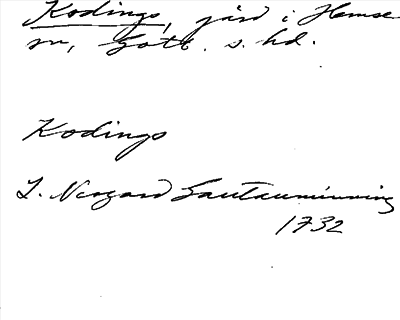 Kodings, jård i Hemse
sn, Gotl. s. hd.
Kodings
L. Neogard Gautauminning
1732